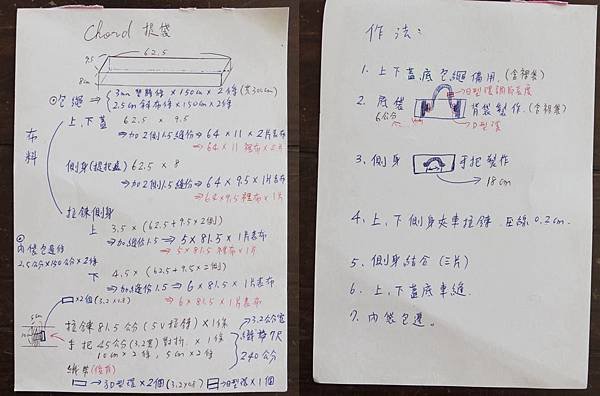 Chord 提袋
62.5
9.5
8cm
⊙包繩 ⇒ 3mm 雙膠條 × 150cm × 2條 (共300cm)
2.5cm 斜布條 × 150cm × 2條
布料
上、下蓋 62.5 × 9.5
⇒ 加2側1.5縫份 ⇒ 64 × 11 × 2片表布
⇒ 64 × 11 裡布 × 2片
側身(提把處) 62.5 × 8
⇒ 加2側1.5縫份 ⇒ 64 × 9.5 × 1片表布
⇒ 64 × 9.5 裡布 × 1片
拉鍊側身
上 3.5 × (62.5+9.5×2側)
⇒ 加縫份1.5 ⇒ 5 × 81.5 × 1片表布
⇒ 5 × 81.5 裡布 × 1片
下 4.5 × (62.5+9.5×2側)
⇒ 加縫份1.5 ⇒ 6 × 81.5 × 1片表布
⇒ 6 × 81.5 × 1片
⊙
內袋包邊條
2.5公分×150公分×2條
×2個
5cm
拉鍊 81.5公分 (5V拉鍊) × 1條
手把 45公分 (3.2寬) 對折 × 1條
10cm × 2條, 5cm × 2條
3.2公分寬
織帶7尺
240公分
織帶
⇒ D型環 × 2個 日型環 × 1個
作法：
1. 上下蓋.底包繩備用. (含裡襯)
日型環調節長度
2. 底襠 背袋製作. (含裡襯)
6公分
D型環
3. 側身 手把製作
18cm
4. 上、下側身夾車拉鍊. 壓線0.2cm.
5. 側身結合 (三片)
6. 上、下蓋底車縫.
7. 內袋包邊。